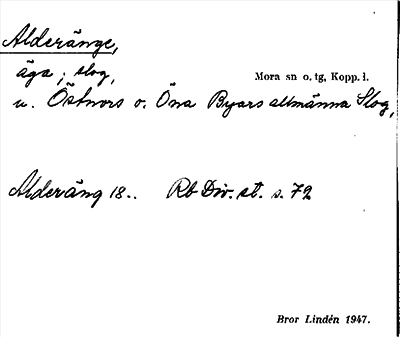 Alderänge,
äga; slog,
Mora sn o. tg, Kopp. l.
u. Östnors o. Öna Byars allmänna Slog,
Alderäng 18.. Rb Div. st. s. 72
Bror Lindén 1947.